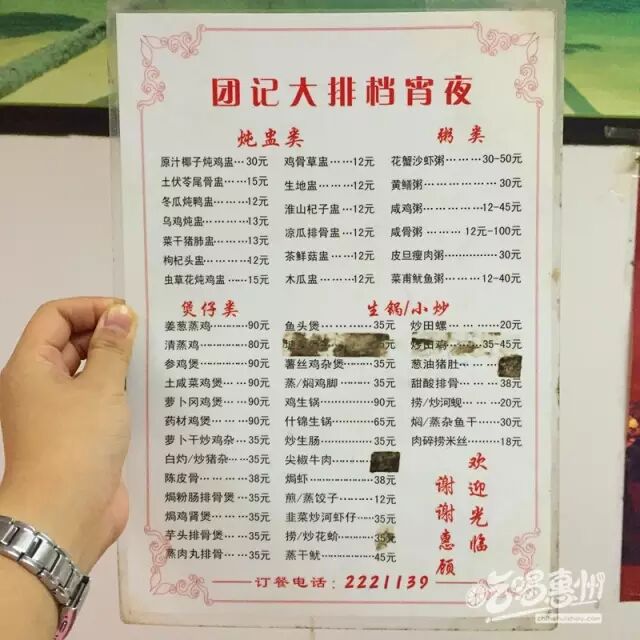 团记大排档宵夜
炖盅类
原汁椰子炖鸡盅…30元
土伏苓尾骨盅……15元
冬瓜炖鸭盅………12元
乌鸡炖盅…………13元
菜干猪肺盅………13元
枸杞头盅…………12元
虫草花炖鸡盅……15元
鸡骨草盅……12元
生地盅………12元
淮山杞子盅…12元
凉瓜排骨盅…12元
茶鲜菇盅……12元
木瓜盅………12元
粥类
花蟹沙虾粥………30-50元
黄鳝粥……………30元
咸鸡粥……………12-45元
咸骨粥……………12元-100元
皮旦瘦肉粥………30元
菜甫鱿鱼粥………12-40元
煲仔类
姜葱蒸鸡…………90元
清蒸鸡……………80元
参鸡煲……………90元
土咸菜鸡煲………90元
萝卜冈鸡煲………90元
药材鸡煲…………90元
萝卜干炒鸡杂……35元
白灼/炒猪杂……35元
陈皮骨……………38元
焗粉肠排骨煲……35元
焗鸡肾煲…………35元
芋头排骨煲………35元
蒸肉丸排骨………35元
生锅/小炒
鱼头煲……………35元
薯丝鸡杂煲………35元
蒸/焖鸡脚………35元
鸡生锅……………90元
什锦生锅…………65元
炒生肠……………35元
尖椒牛肉…………
焗虾………………38元
煎/蒸饺子………12元
韭菜炒河虾仔……35元
捞/炒花蛤………35元
蒸干鱿……………45元
炒田螺……………20元
炒田鸡……………35-45元
葱油猪肚…………
甜酸排骨…………38元
捞/炒河蚬………20元
焖/蒸杂鱼干……30元
肉碎捞米丝………18元
欢迎光临
谢谢惠顾
订餐电话：2221139
吃喝惠州
chihehuizhou.com